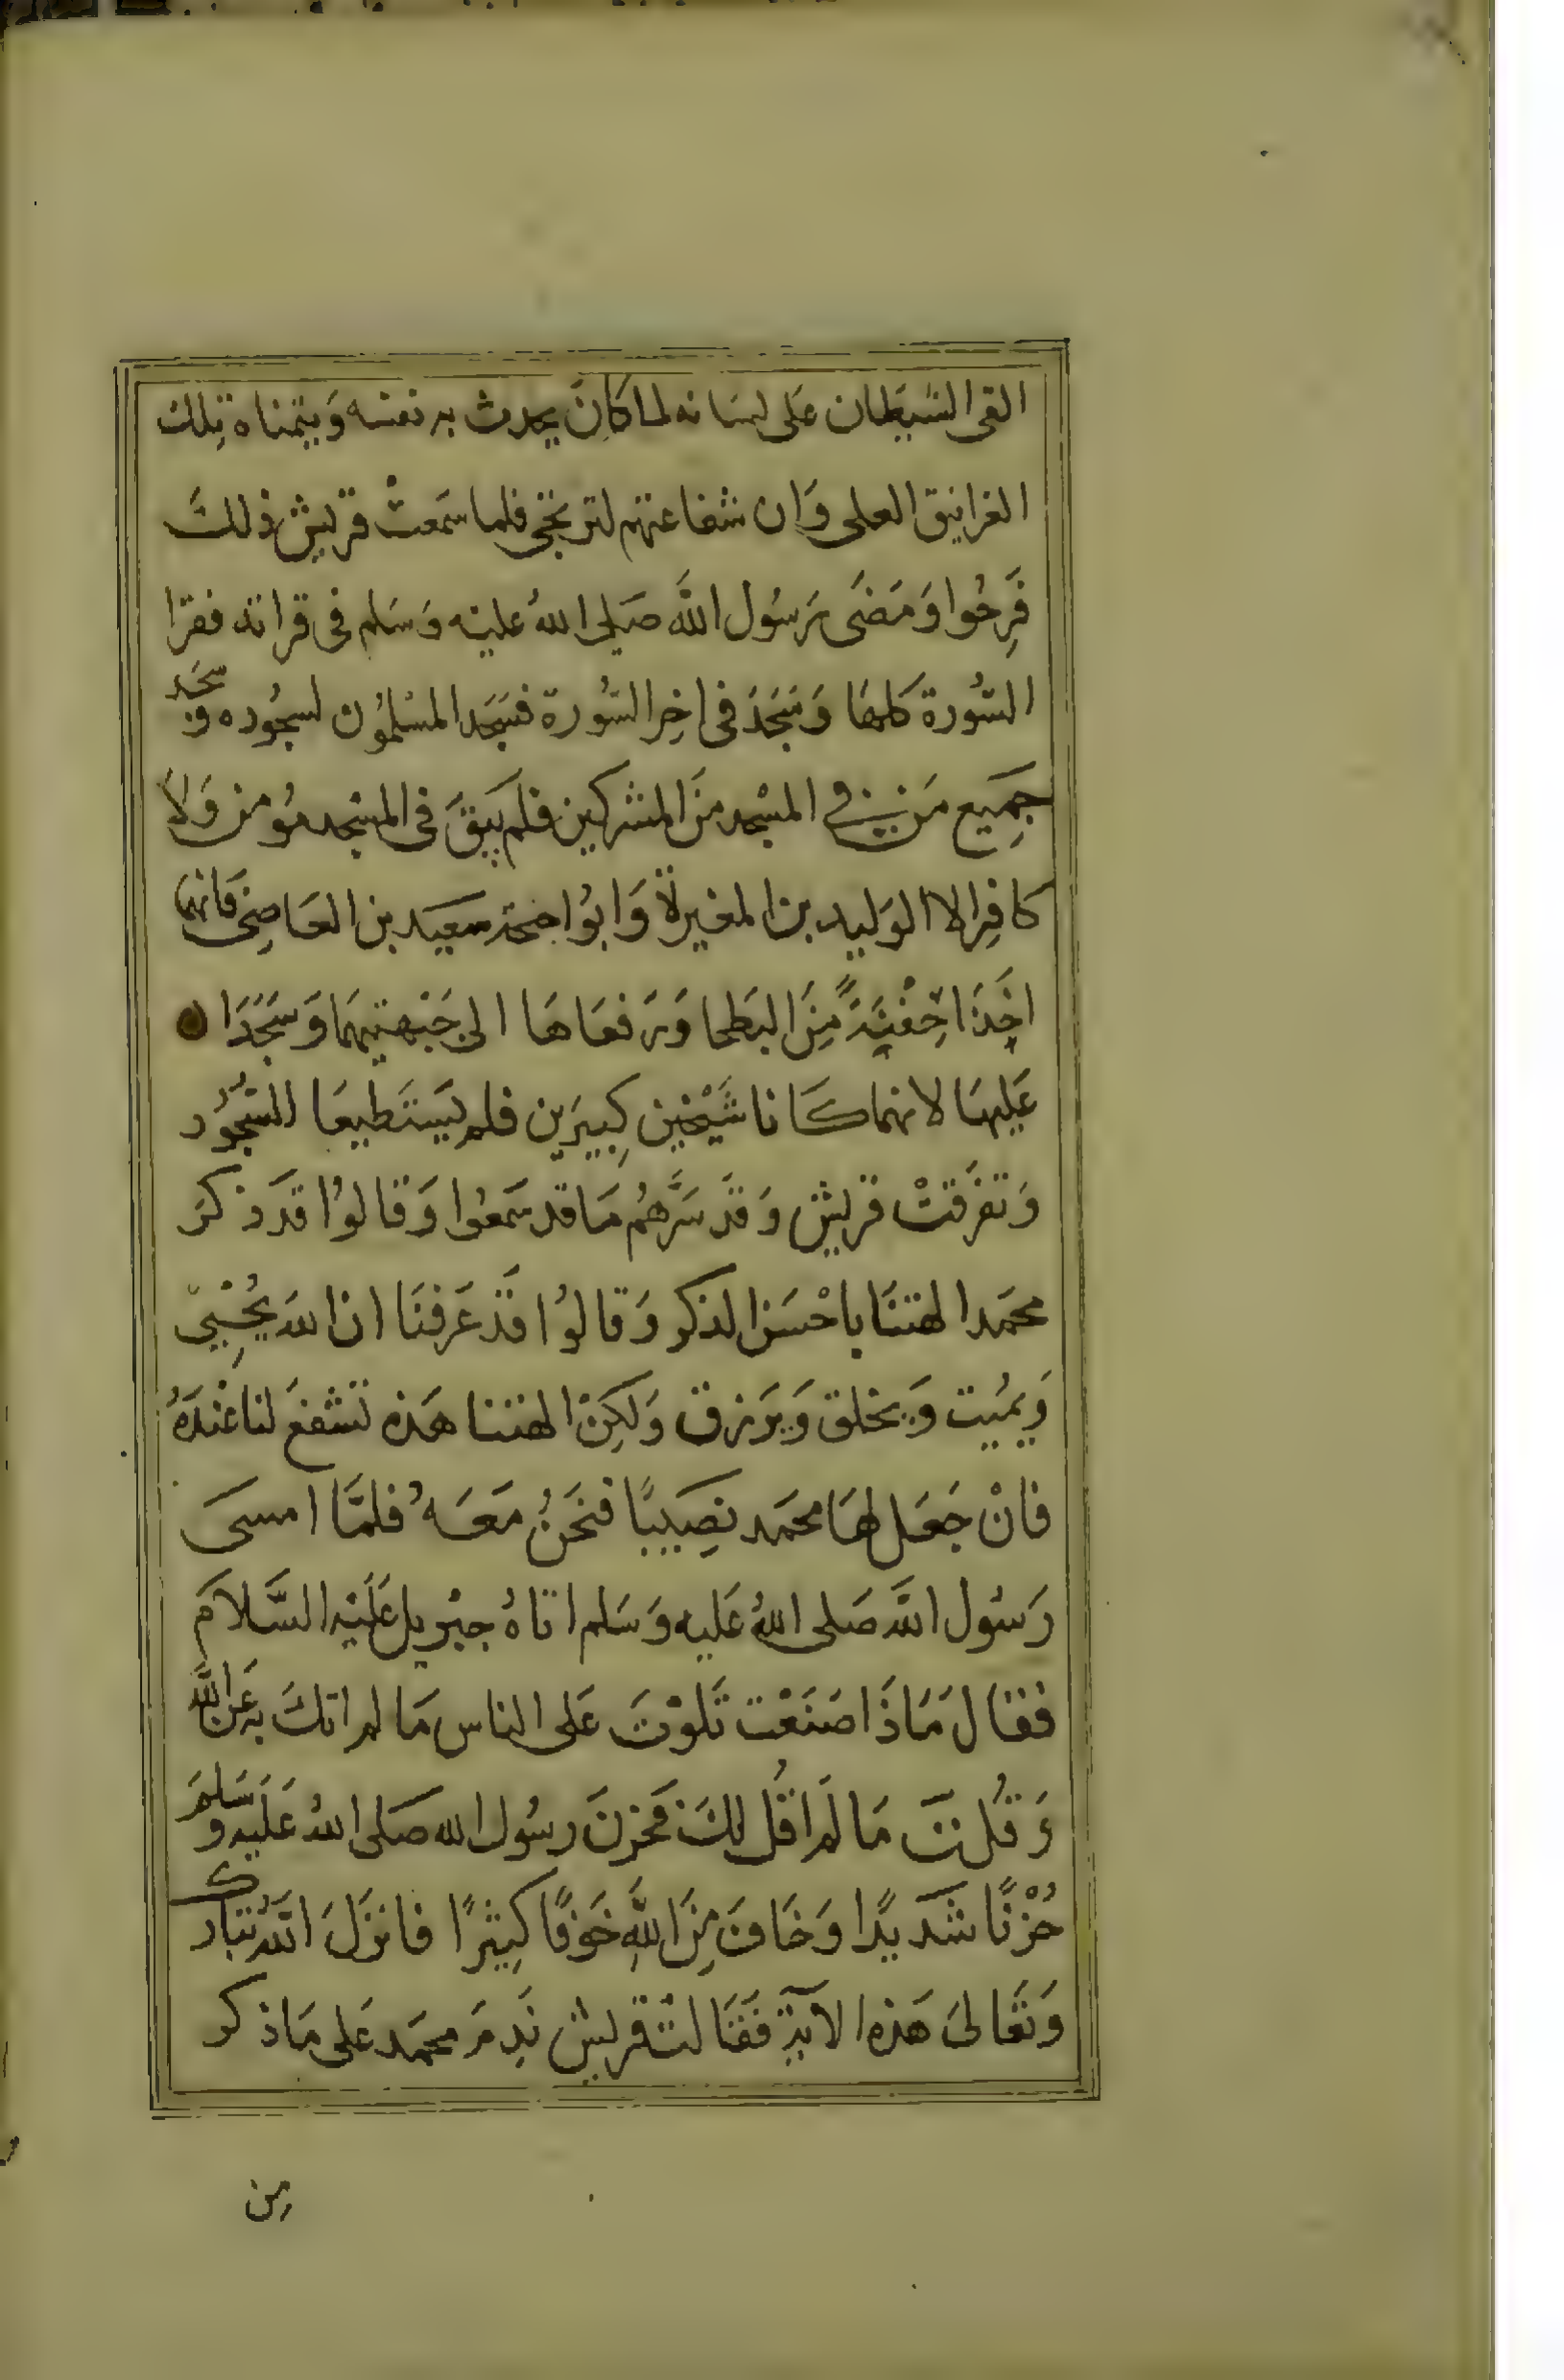 القى الشيطان عَلى لسَانه لما كانَ يحدث به نفسه وَيتمناه تِلك
الغرانيق العلى وَان شفاعتهم لترتجى فلما سَمعتْ قريش ذلكَ
فَرِحُوا وَمَضَى رَسُول اللَّه صَلى اللهُ عليْه وَسَلم فى قراته فقرا
السُّورة كلهَا وَسَجَدَ فى اخِر السُّورة فسَجَد المسْلمُون لسجُوده وَسَجَد
جَمِيع مَن فى المسْجد منَ المشركين فلم يَبقَ فى المسْجد مُومن وَلاَ
كافِر الا الوَليد بن المغيرة وَابوُ احَيحة سَعيد بن العَاصِى فَانهما
اخَذَا حَفْنَةً مِنَ البَطحا وَرَفعَاهَا الى جَبْهَتِيهمَا وَسَجَدَا
عَليهَا لانهما كَانا شَيْخَين كبِيرَين فلم يَستَطيعَا السّجُود
وَتفرَقتْ قريش وَقَد سَرَّهُم مَا قد سَمعُوا وَقالوُا قَد ذكرَ
محمَد الهتنَا باحْسَن الذكر وَقالوُا قَد عَرفنَا ان اللهَ يُحْيِى
وَيمُيت وَيخلق وَيَرزق وَلكِنْ الهتنا هَذه تشفعَ لنا عنْدَهُ
فانْ جَعَل لهَا محمَد نصِيبًا فنحَنُ مَعَهُ فلمَّا امسَى
رَسُول اللَّه صَلى اللهُ عَليه وَسَلم اتاهُ جبْريل عَليْه السَّلامَ
فقال مَاذَا صَنَعْت تَلوْتَ عَلى الناس مَا لم اتكَ به عَن اللَّه
وَقُلتَ مَا لَم اقُل لكَ فحَزنَ رسُول الله صَلى اللهُ عَليَه وَسَلمَ
حُزْنًا شَديدًا وَخَافَ مِنَ اللَّهِ خَوفًا كبِيرًا فانزَلَ اللَّهُ تبَارك
وَتَعَالىَ هَذه الآيَة فقَالتْ قريش نَدِمَ محمَد عَلى مَا ذكر
مِن